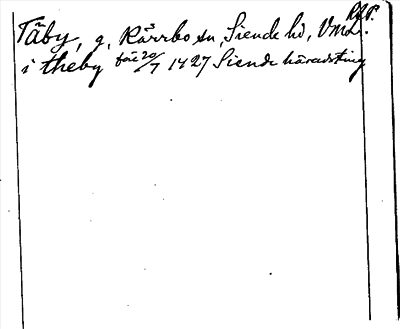 Täby, g, Kärrbo sn, Siende hd, Vml.
i theby före 20/7 1427 Siende häradsting